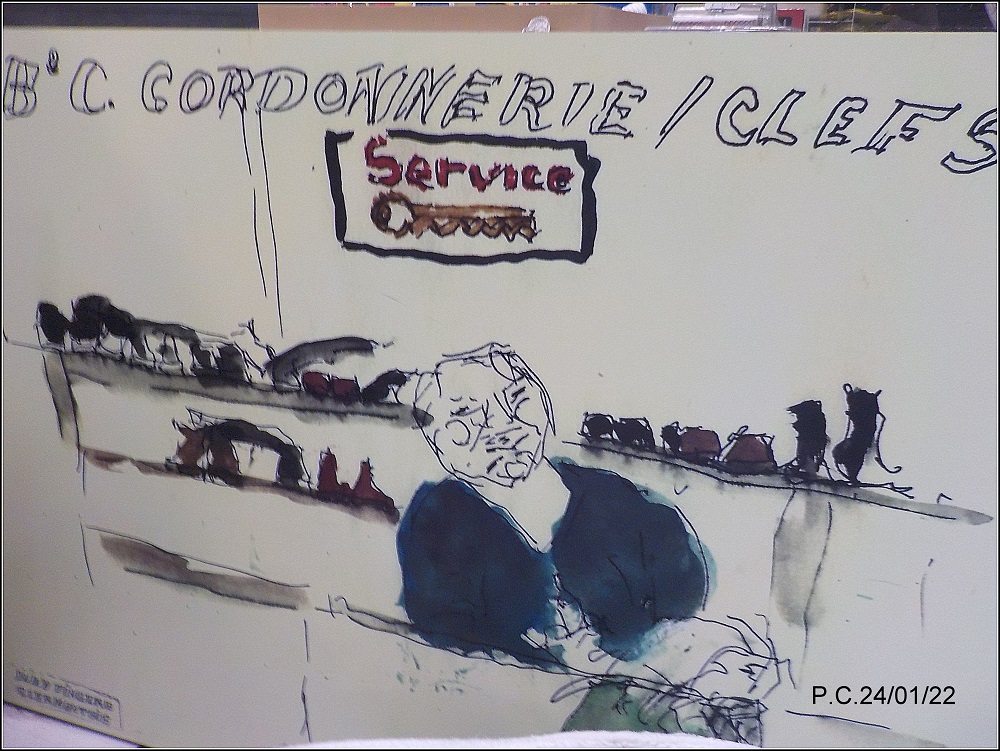 B'C. CORDONNERIE / CLEFS
Service
P.C.24/01/22